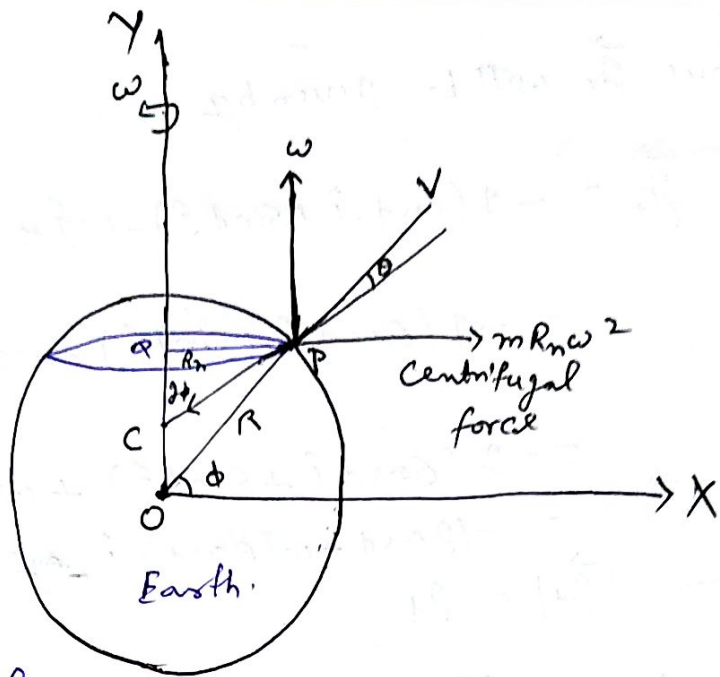 Y
ω
ω
V
θ
Q
Rn
P
mRnω²
Centrifugal
force
C
R
ϕ
O
X
Earth.